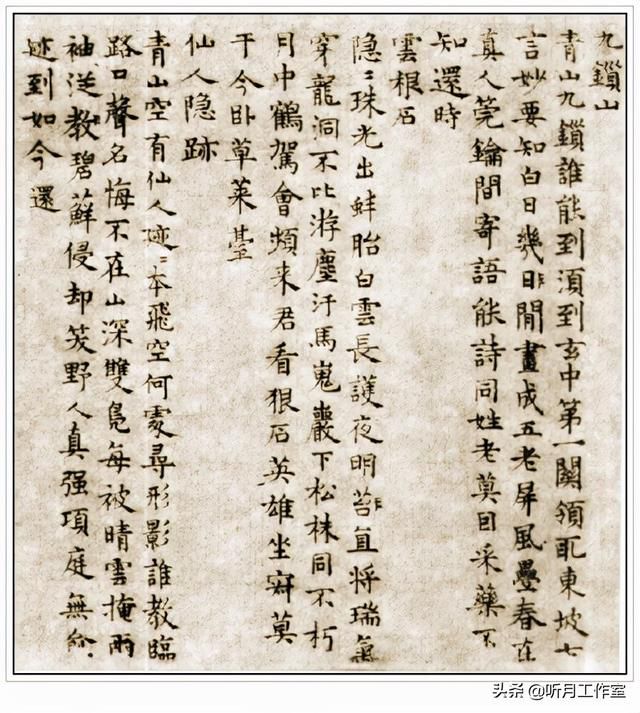 九鎖山
青山九鎖誰能到須到玄中第一關領取東坡七
言妙要知白日幾閒畫成五老屏風疊春在
真人筦鑰間寄語能詩同姓老莫因采藥不
知還時
雲根石
隐〻珠光出蚌胎白雲長護夜明苔直將瑞氣
穿龍洞不比游塵汙馬嵬巖下松株同不朽
月中鶴駕會頻来君看狠石英雄坐寂莫
于今卧草萊
仙人隐跡
青山空有仙人迹〻本飛空何處尋形影誰教臨
路口聲名悔不在山深雙鳧每被晴雲掩兩
袖從教碧蘚侵却笑野人真强項庭無
迹到如今還
头条 @听月工作室